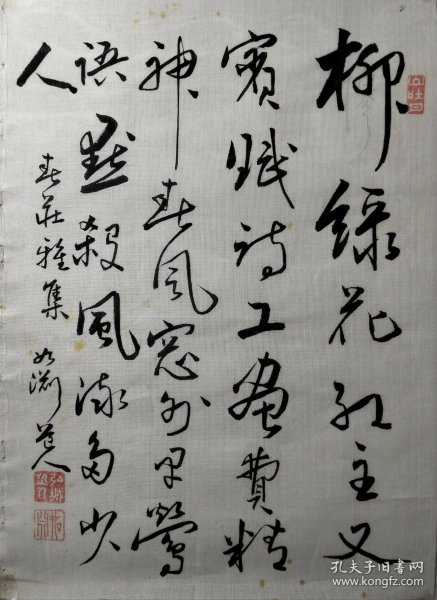 柳綠花紅主又
賓賦詩工畫費精
神春風窓外早鶯
語愁殺風流多少
人
春莊雅集 如淵道人
孔夫子旧书网
www.kongfz.com